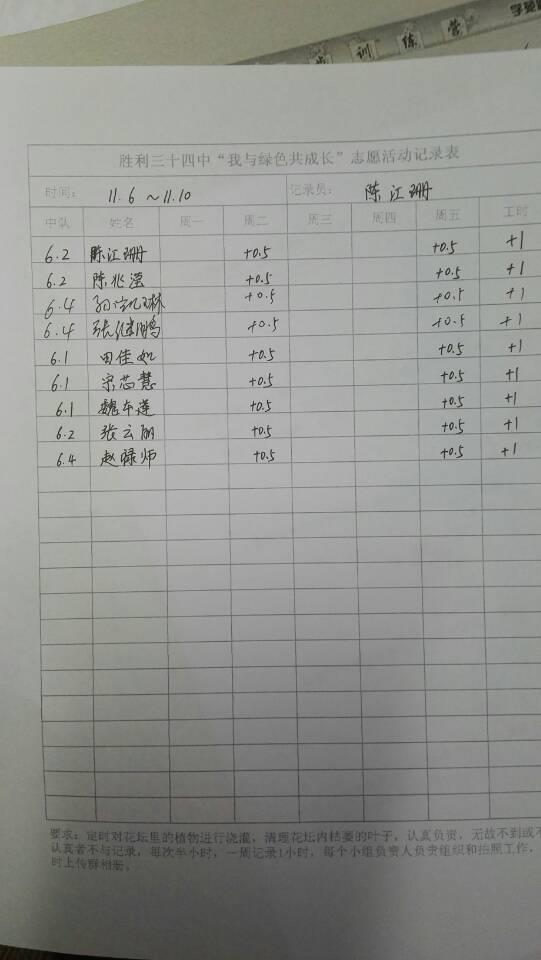 训练营
胜利三十四中“我与绿色共成长”志愿活动记录表
时间： 11.6～11.10 记录员： 陈江珊
中队 姓名 周一 周二 周三 周四 周五 工时
6.2 陈江珊 +0.5 +0.5 +1
6.2 陈兆滢 +0.5 +0.5 +1
6.4 +0.5 +0.5 +1
6.4 张继鹏 +0.5 +0.5 +1
6.1 田佳如 +0.5 +0.5 +1
6.1 宗芯慧 +0.5 +0.5 +1
6.1 魏车莲 +0.5 +0.5 +1
6.2 张云朋 +0.5 +0.5 +1
6.4 赵禄师 +0.5 +0.5 +1
要求：定时对花坛里的植物进行浇灌，清理花坛内枯萎的叶子，认真负责，无故不到或不
认真者不与记录，每次半小时，一周记录1小时，每个小组负责人负责组织和拍照工作，
时上传群相册。